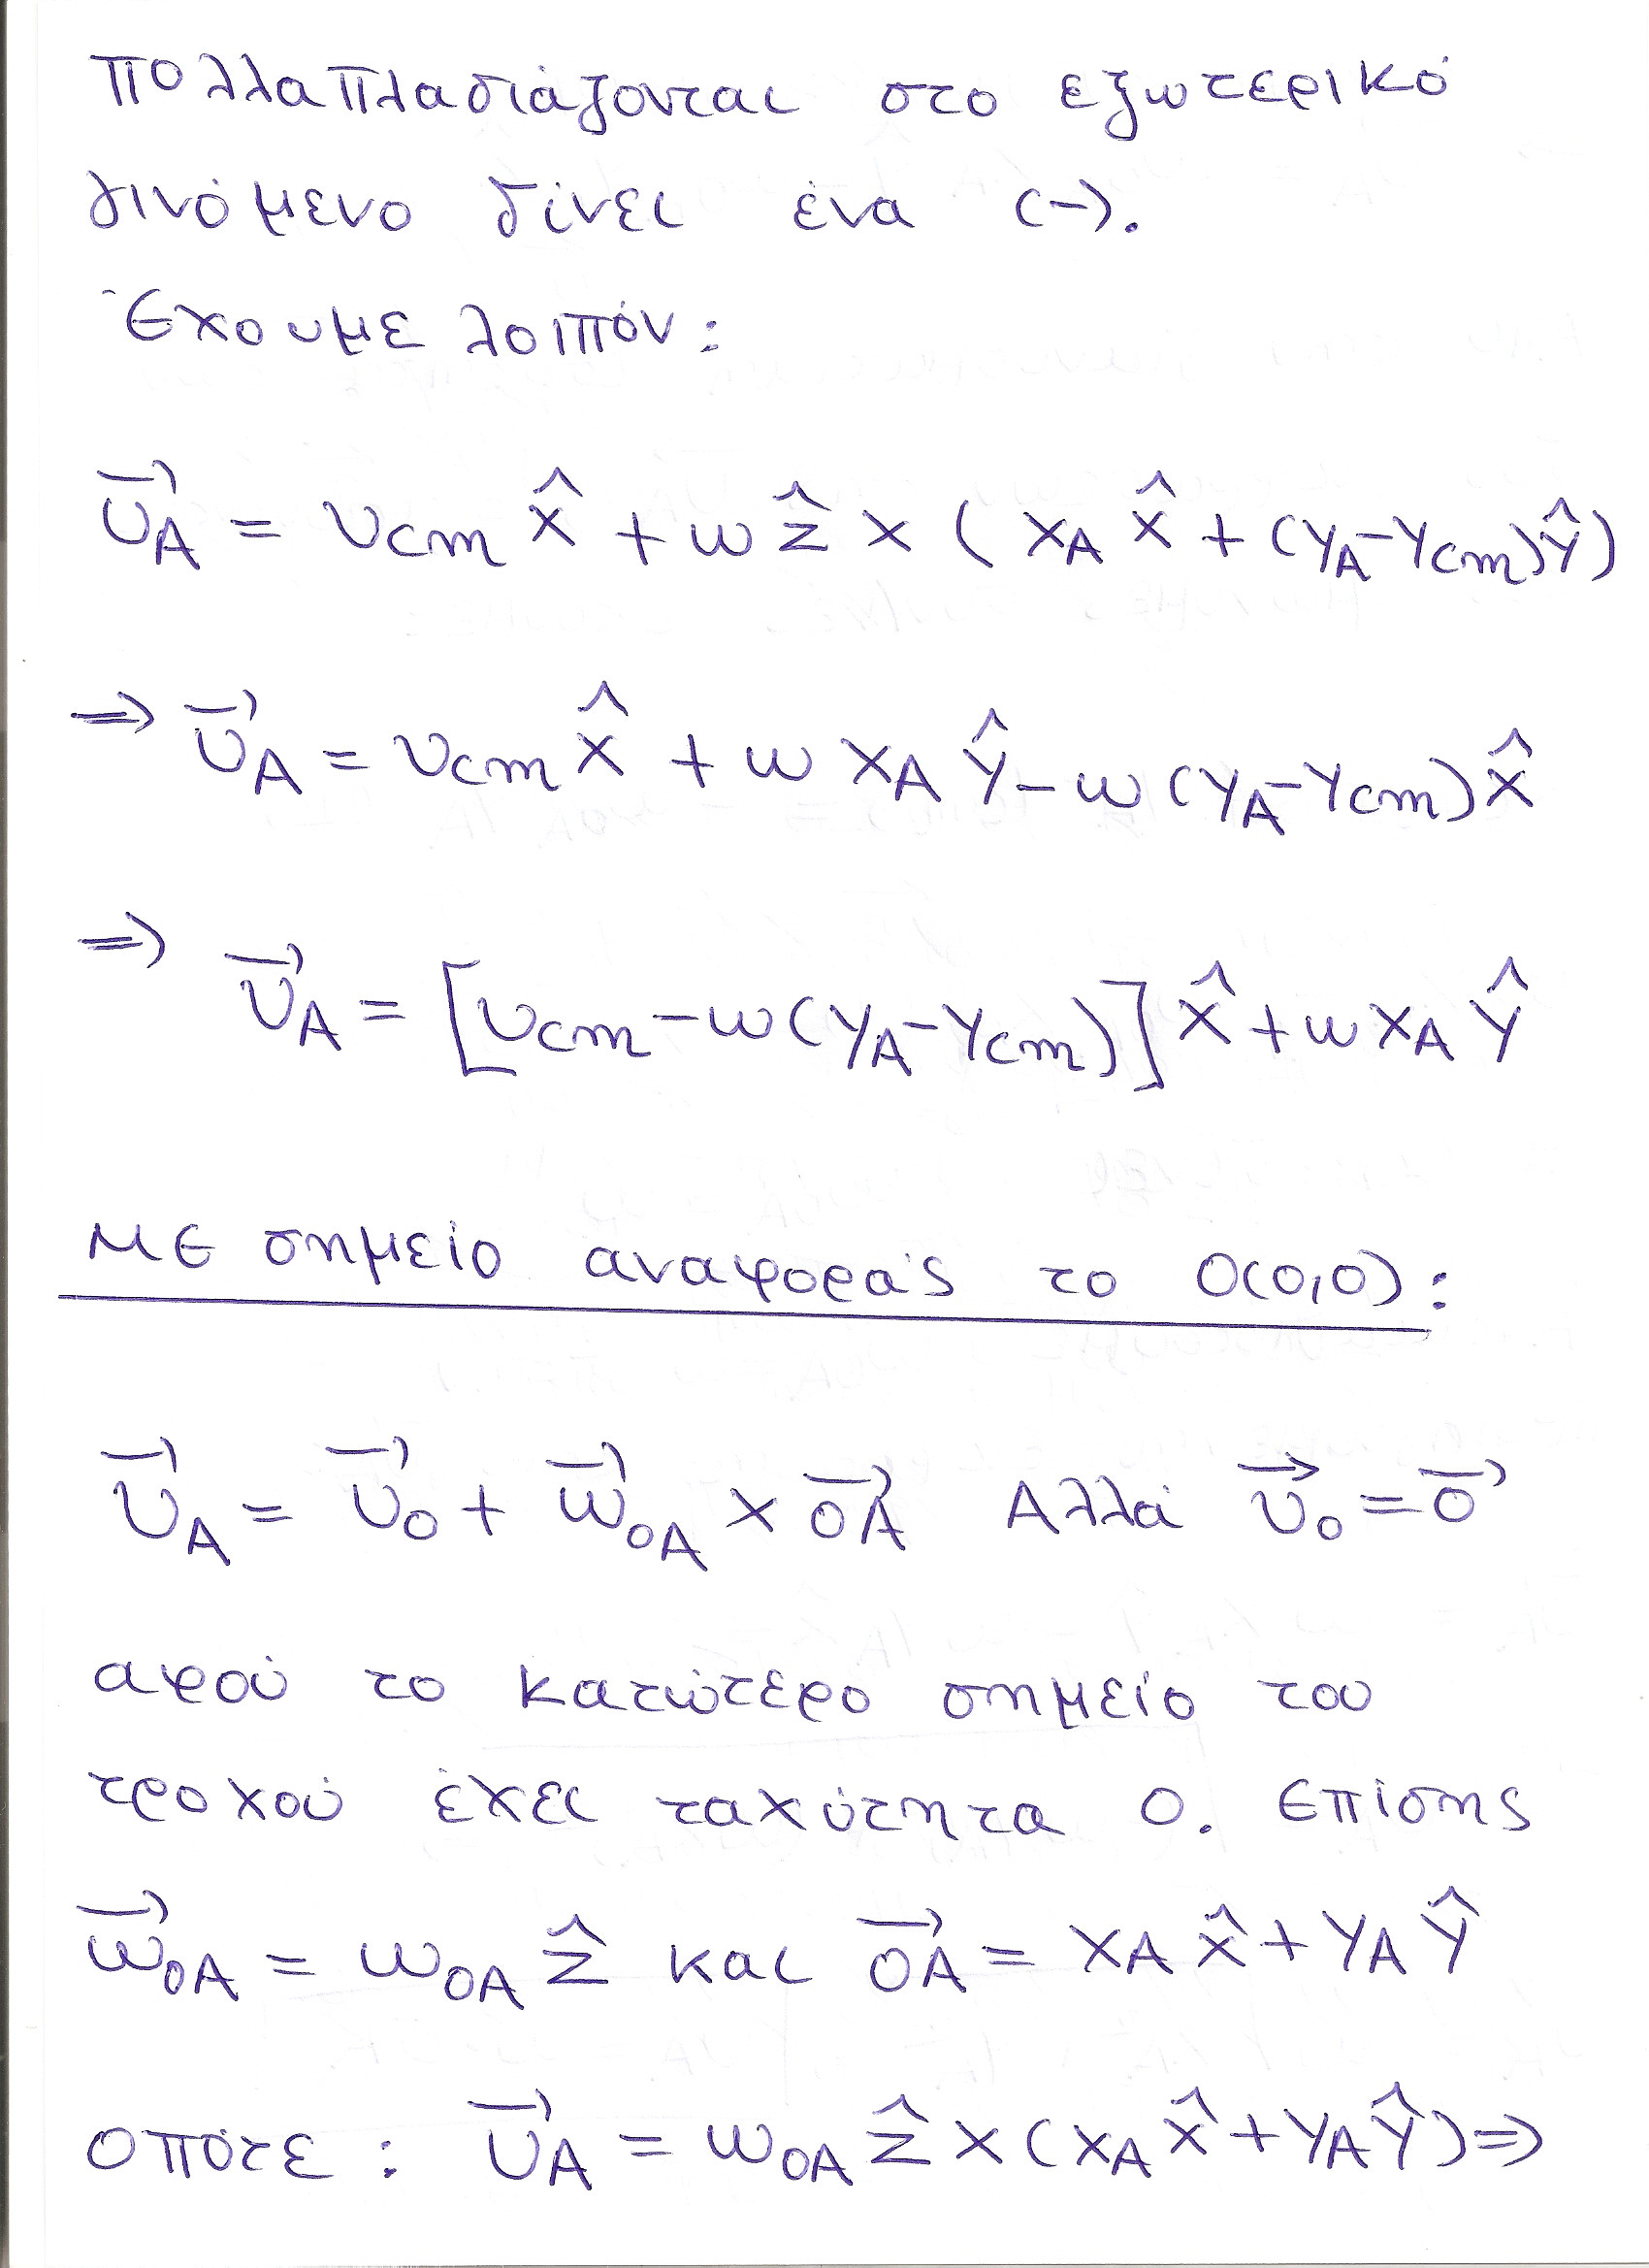 πολλαπλασιάζονται στο εξωτερικό
γινόμενο δίνει ένα (-).
Έχουμε λοιπόν:
\vec{υ}_A = υ_{cm} \hat{x} + ω \hat{z} × ( x_A \hat{x} + (y_A - y_{cm}) \hat{y} )
⇒ \vec{υ}_A = υ_{cm} \hat{x} + ω x_A \hat{y} - ω (y_A - y_{cm}) \hat{x}
⇒ \vec{υ}_A = [υ_{cm} - ω (y_A - y_{cm})] \hat{x} + ω x_A \hat{y}
Με σημείο αναφοράς το O(0,0):
\vec{υ}_A = \vec{υ}_O + \vec{ω}_{OA} × \vec{OA} Αλλά \vec{υ}_O = \vec{0}
αφού το κατώτερο σημείο του
τροχού έχει ταχύτητα 0. Επίσης
\vec{ω}_{OA} = ω_{OA} \hat{z} και \vec{OA} = x_A \hat{x} + y_A \hat{y}
οπότε: \vec{υ}_A = ω_{OA} \hat{z} × (x_A \hat{x} + y_A \hat{y}) ⇒